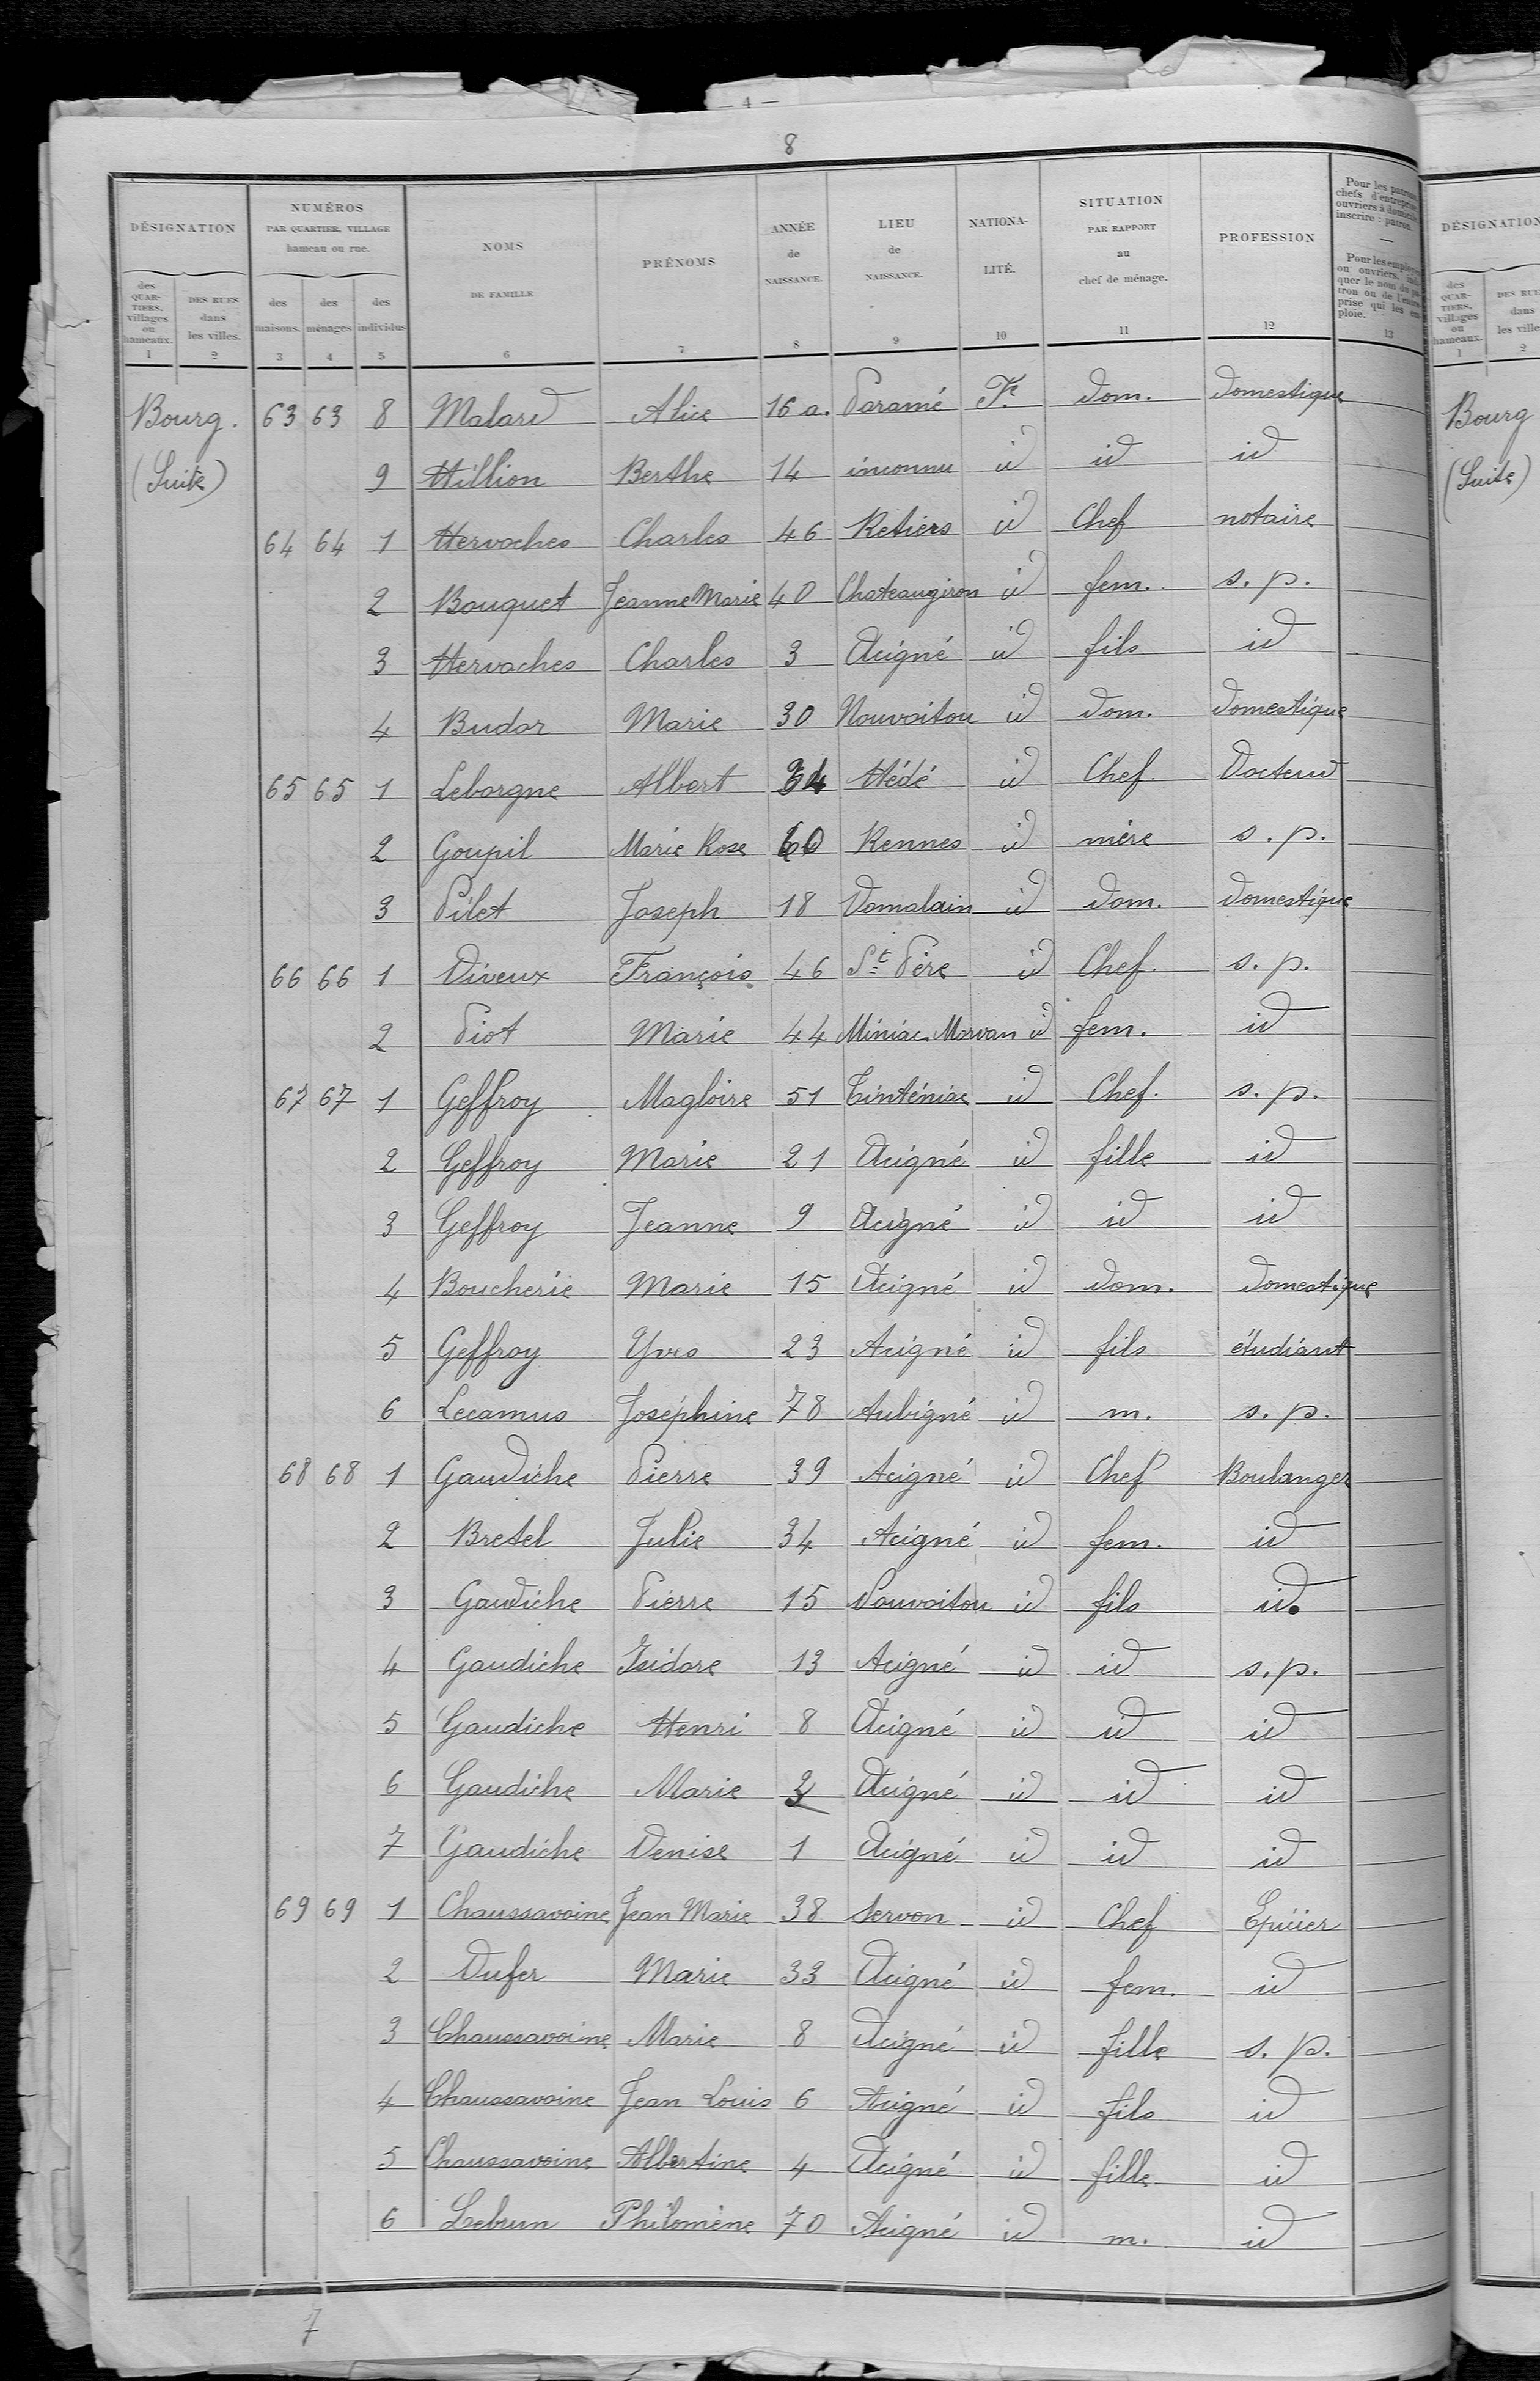 — 4 —
8
DÉSIGNATION
des QUARTIERS, villages ou hameaux. 1
DES RUES dans les villes. 2
NUMÉROS PAR QUARTIER, VILLAGE hameau ou rue.
des maisons. 3
des ménages 4
des individus 5
NOMS DE FAMILLE 6
PRÉNOMS 7
ANNÉE de NAISSANCE. 8
LIEU de NAISSANCE. 9
NATIONALITÉ. 10
SITUATION PAR RAPPORT au chef de ménage. 11
PROFESSION 12
Pour les patrons, chefs d'entreprise, ouvriers à domicile, inscrire : patron. — Pour les employés ou ouvriers, indiquer le nom du patron ou de l'entreprise qui les emploie. 13
Bourg. 63 63 8 Malard Alice 16 a. Paramé Fe dom. domestique
(Suite) 9 Hillion Berthe 14 inconnu id id id
64 64 1 Hervoches Charles 46 Retiers id Chef notaire
2 Bouquet Jeanne Marie 40 Chateaugiron id fem. s. p.
3 Hervoches Charles 3 Acigné id fils id
4 Budor Marie 30 Nouvoitou id dom. domestique
65 65 1 Leborgne Albert 34 Hédé id Chef. Docteur
2 Goupil Marie Rose 60 Rennes id mère s. p.
3 Pilet Joseph 18 Domalain id dom. domestique
66 66 1 Diveux François 46 St Père id Chef. s. p.
2 Piot Marie 44 Miniac Morvan id fem. id
67 67 1 Geffroy Magloire 51 Tinténiac id Chef. s. p.
2 Geffroy Marie 21 Acigné id fille id
3 Geffroy Jeanne 9 Acigné id id id
4 Boucherie Marie 15 Acigné id dom. domestique
5 Geffroy Yves 23 Acigné id fils étudiant
6 Lecamus Joséphine 78 Aubigné id m. s. p.
68 68 1 Gaudiche Pierre 39 Acigné id Chef Boulanger
2 Bretel Julie 34 Acigné id fem. id
3 Gaudiche Pierre 15 Nouvoitou id fils id.
4 Gaudiche Isidore 13 Acigné id id s. p.
5 Gaudiche Henri 8 Acigné id id id
6 Gaudiche Marie Acigné id id id
7 Gaudiche Denise 1 Acigné id id id
69 69 1 Chaussavoine Jean Marie 38 Servon id Chef Epicier
2 Dufer Marie 33 Acigné id fem. id
3 Chaussavoine Marie 8 Acigné id fille s. p.
4 Chaussavoine Jean Louis 6 Acigné id fils id
5 Chaussavoine Albertine 4 Acigné id fille id
6 Lebrun Philomène 70 Acigné id m. id
7
DÉSIGNATION
des QUARTIERS, villages ou hameaux. 1
DES RUES dans les villes. 2
Bourg
(Suite)